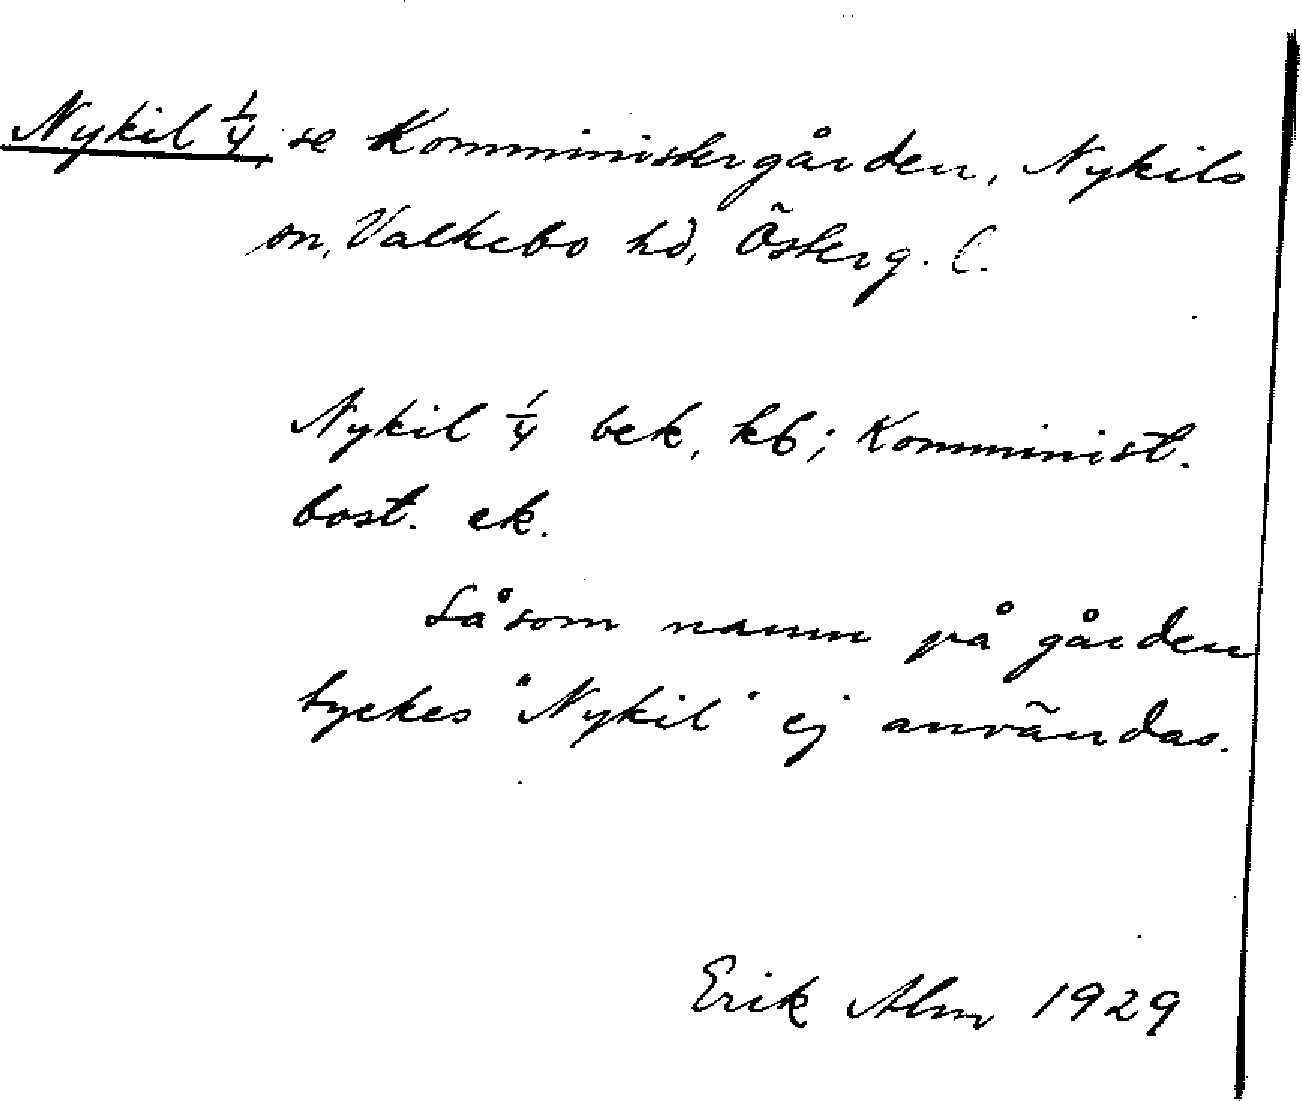 Nykil 1/4, se Komministergården, Nykils
sn, Valkebo hd, Österg. l.
Nykil 1/4 bek, kb; Komminist.
bost. ek.
Såsom namn på gården
tyckes "Nykil" ej användas.
Erik Alm 1929